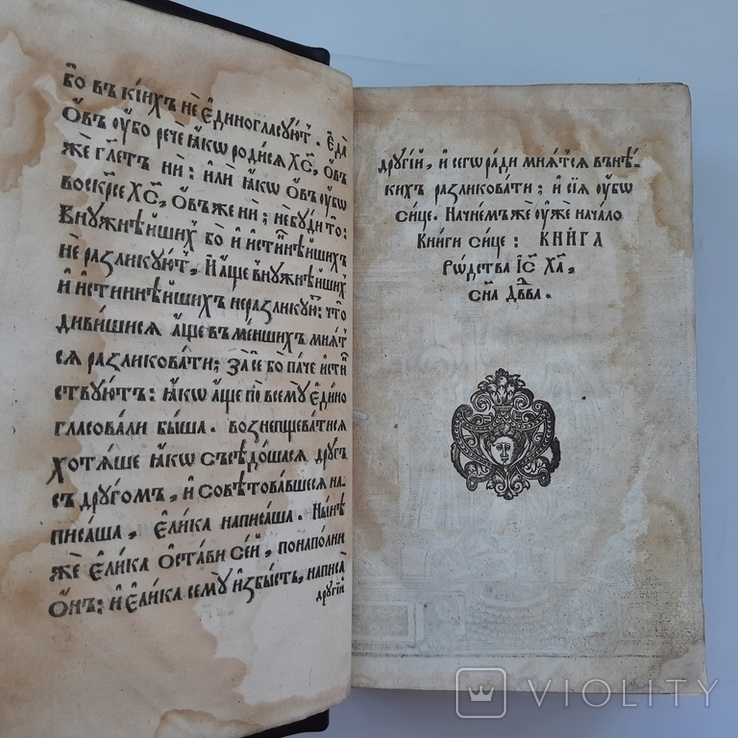 бо въ кі́ихъ не є҆диногласꙋ́ют . Єда̀
Ѻ҆́въ ᲂу҆́бо речѐ ꙗ҆́кѡ роди́сѧ Хс҃, Ѻ҆́въ
же гл҃етъ нѝ : и҆лѝ ꙗ҆́кѡ Ѻ҆́въ ᲂу҆́бѡ
воскр҃се Хс҃, Ѻ҆́въ же нѝ ; не бꙋ́ди то̀ :
Внꙋжнѣ́йших бо и҆ и҆́стиннѣйшихъ
не разликꙋ́ют, И҆ а҆́ще внꙋжнѣ́йших
и҆ и҆́стиннѣйшихъ неразликꙋ́ют : что̀
диви́шисѧ а҆́ще въ ме́ншихъ мнѧ́т
сѧ разликова́ти ; За сѐ бо па́че и҆́сти
ствꙋ́ютъ : ꙗ҆́кѡ а҆́ще по всемꙋ̀ є҆дино
гласова́ли бы́ша . возне́пщеватисѧ
хотѧ́ше ꙗ҆́кѡ съсѣдо́шасѧ дрꙋ́гъ
съ дрꙋ́гомъ , и҆ совѣ́товавшесѧ на-
писа́ша , є҆ли́ка написа́ша . Ны́нѣ
же є҆ли́ка ѻ҆ста́ви се́й , понапо́лни
Ѻ҆́нъ : и҆ є҆ли́ка семꙋ̀ и҆збы́сть , написа̀
дрꙋгі́й
дрꙋгі́й , и҆ сегѡ̀ ра́ди мнѧ́тсѧ въ нѣ́-
кихъ разликова́ти ; и҆ сїѧ̀ ᲂу҆́бѡ
си́це . На́чнемъ же ᲂу҆жѐ нача́ло
Кни́ги си́це : КНИ́ГА
Рѡдства̀ І҆с҃ Ха҃ ,
Сн҃а Дв҃ва .
VIOLITY